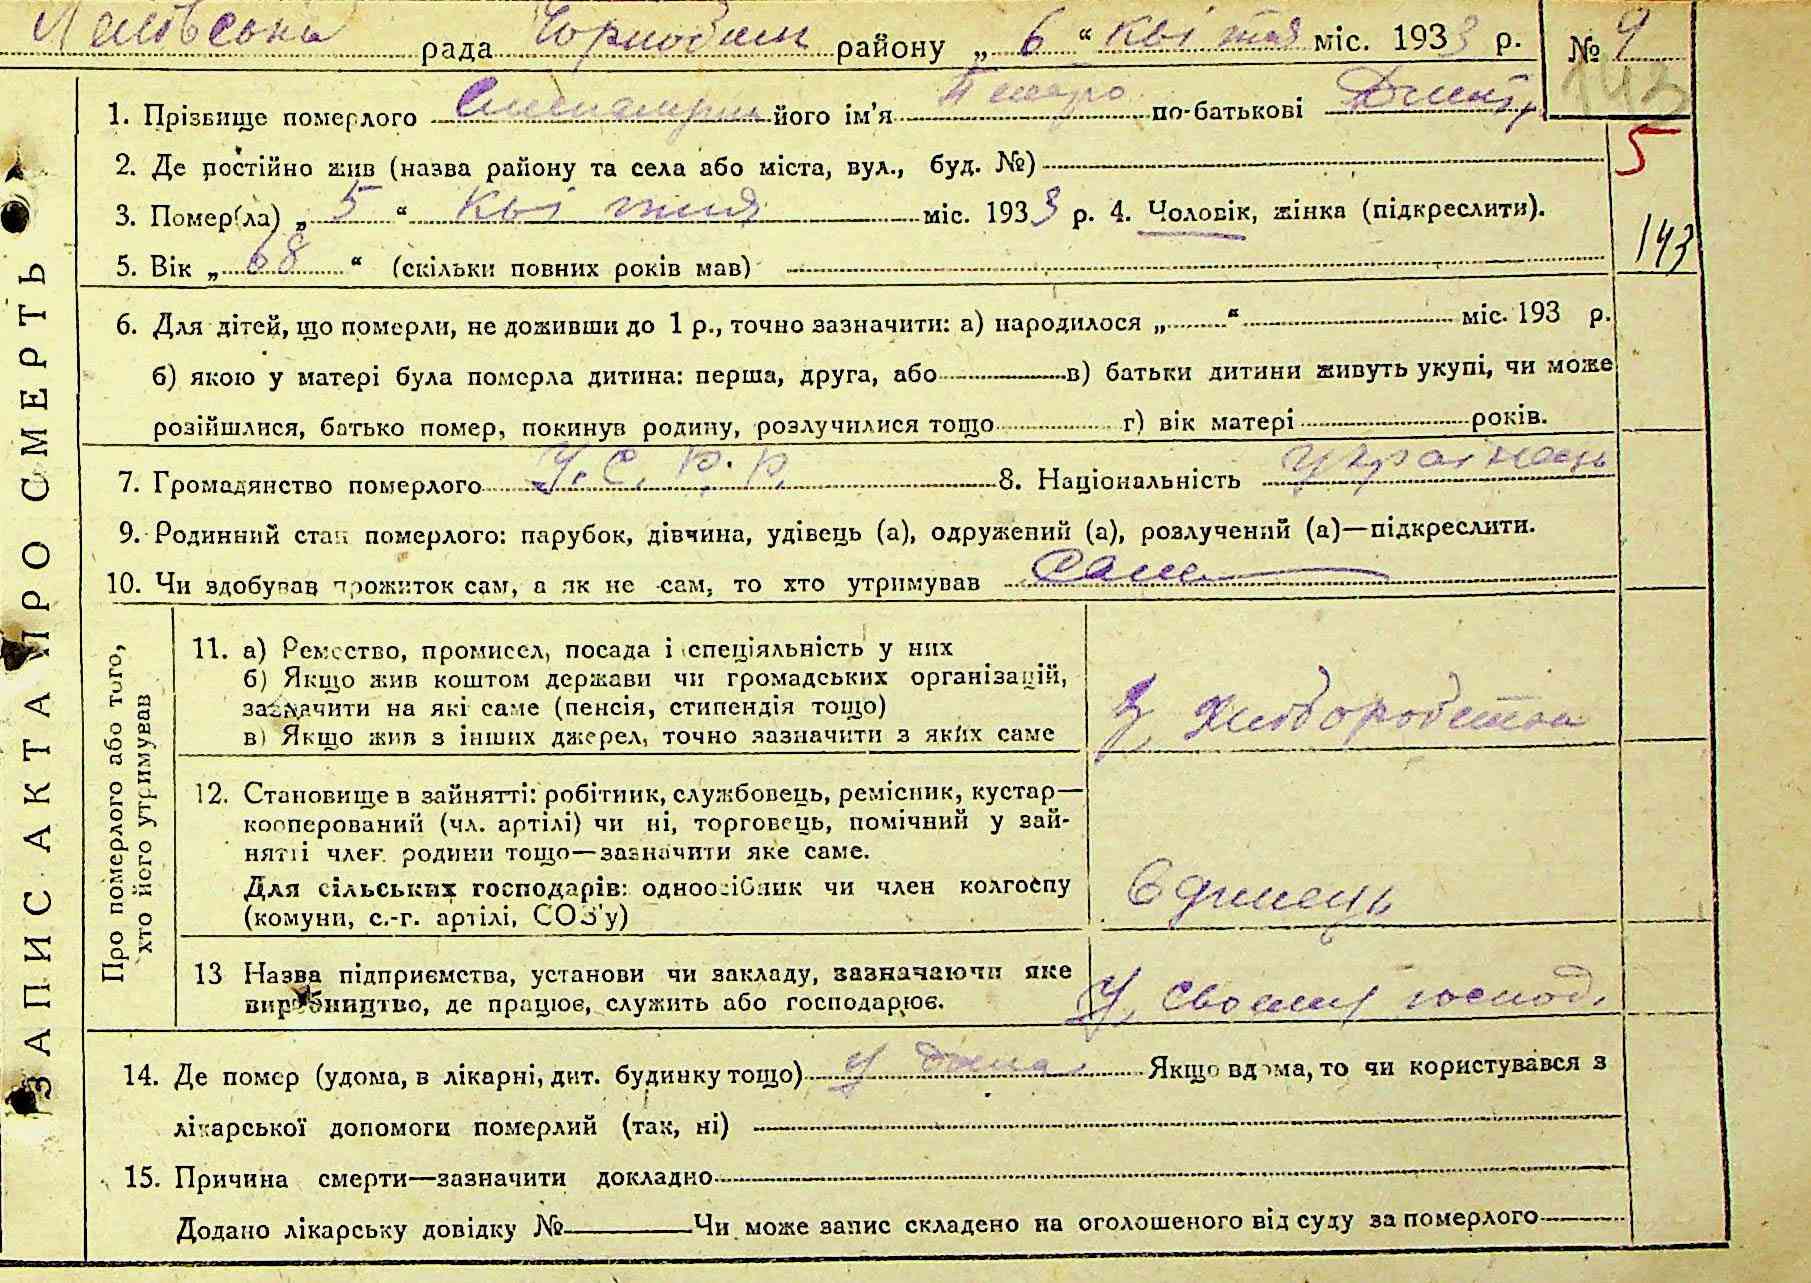 рада Чорнобил району „ 6 “ квітня міс. 1933 р. № 9
143
1. Прізвище померлого його ім'я Петро по-батькові Дмитр.
5
2. Де постійно жив (назва району та села або міста, вул., буд. №)
3. Помер(ла) „ 5 “ квітня міс. 1933 р. 4. Чоловік, жінка (підкреслити).
143
5. Вік „ 68 “ (скільки повних років мав)
6. Для дітей, що померли, не доживши до 1 р., точно зазначити: а) народилося „ “ міс. 193 р.
б) якою у матері була померла дитина: перша, друга, або в) батьки дитини живуть укупі, чи може
розійшлися, батько помер, покинув родину, розлучилися тощо г) вік матері років.
7. Громадянство померлого У.С.Р.Р. 8. Національність українець
9. Родинний стан померлого: парубок, дівчина, удівець (а), одружений (а), розлучений (а)—підкреслити.
10. Чи здобував прожиток сам, а як не сам, то хто утримував сам
ЗАПИС АКТА ПРО СМЕРТЬ
Про померлого або того,
хто його утримував
11. а) Ремество, промисел, посада і спеціяльність у них
б) Якщо жив коштом держави чи громадських організацій,
зазначити на які саме (пенсія, стипендія тощо)
в) Якщо жив з інших джерел, точно зазначити з яких саме
З хліборобства
12. Становище в зайнятті: робітник, службовець, ремісник, кустар—
кооперований (чл. артілі) чи ні, торговець, помічний у зай-
нятті член родини тощо—зазначити яке саме.
Для сільських господарів: одноосібник чи член колгоспу
(комуни, с.-г. артілі, СОЗ'у)
Єдинець
13 Назва підприємства, установи чи закладу, зазначаючи яке
виробництво, де працює, служить або господарює.
У своєму господ.
14. Де помер (удома, в лікарні, дит. будинку тощо) у дома Якщо вдома, то чи користувався з
лікарської допомоги померлий (так, ні)
15. Причина смерти—зазначити докладно
Додано лікарську довідку № Чи може запис складено на оголошеного від суду за померлого